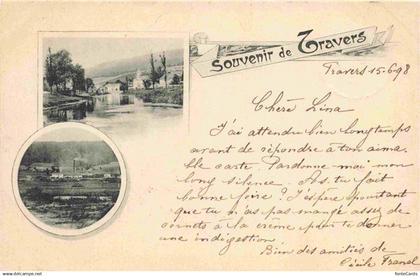 Souvenir de Travers
Travers 15.6.98
Chère Lina
J'ai attendu bien longtemps
avant de répondre à ton aima-
ble carte. Pardonne-moi mon
long silence. As-tu fait
bonne foire? J'espère pourtant
que tu n'as pas mangé assez de
cornets à la crème pour te donner
une indigestion.
Bien des amitiés de
Cécile